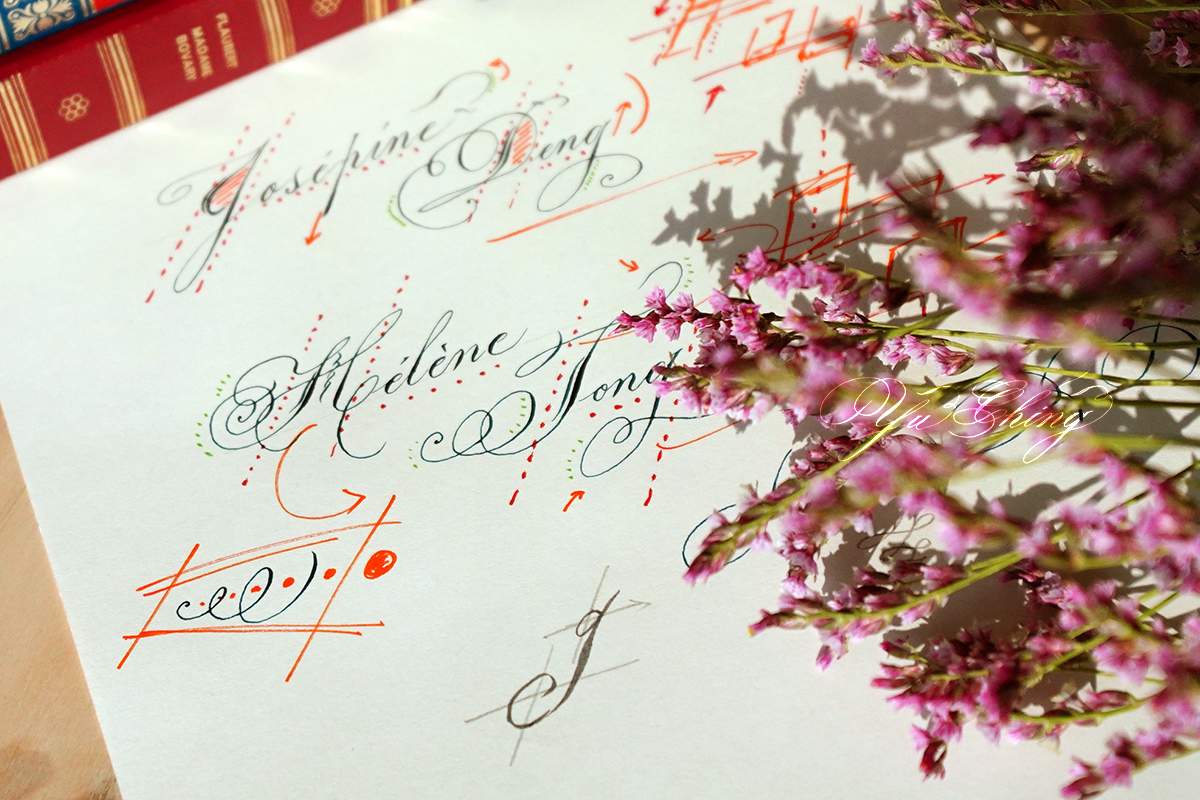 FLAUBERT
MADAME
BOVARY
Josépine Deng
Hélène Tong
Yu Ching